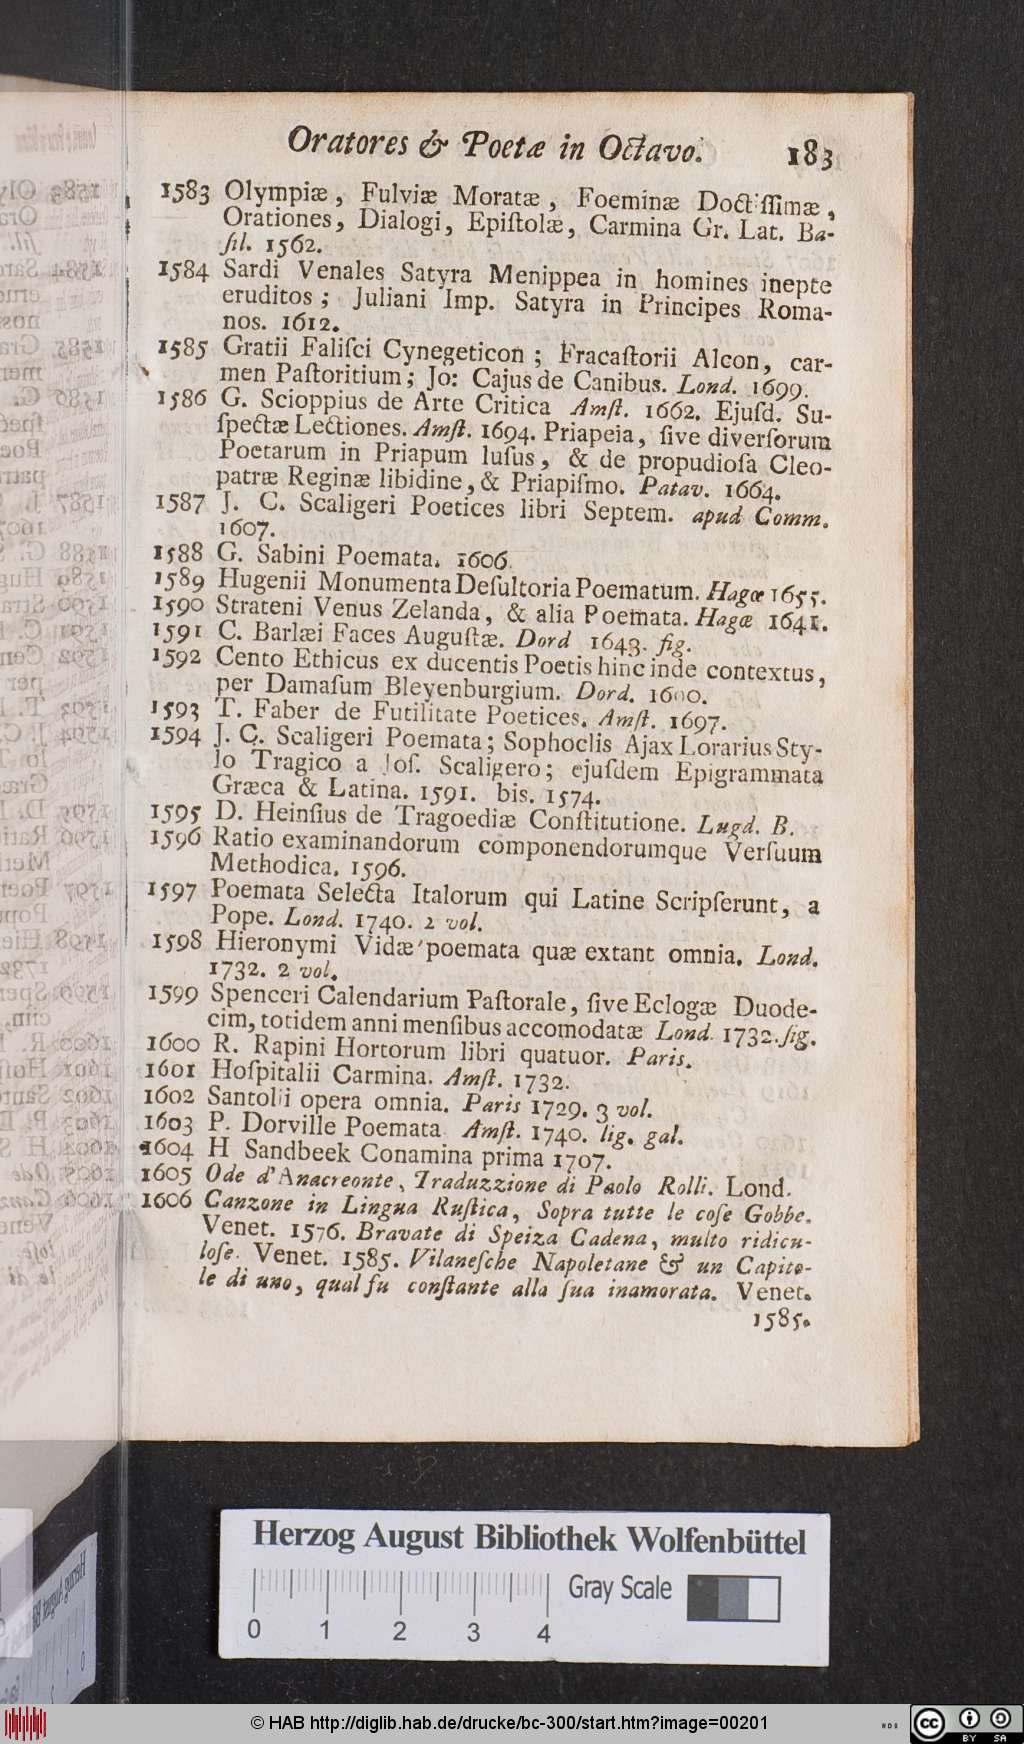 Oratores & Poetæ in Octavo. 183
1583 Olympiæ, Fulviæ Moratæ, Foeminæ Doctiſſimæ,
Orationes, Dialogi, Epiſtolæ, Carmina Gr. Lat. Ba-
ſil. 1562.
1584 Sardi Venales Satyra Menippea in homines inepte
eruditos; Juliani Imp. Satyra in Principes Roma-
nos. 1612.
1585 Gratii Faliſci Cynegeticon; Fracaſtorii Alcon, car-
men Paſtoritium; Jo: Cajus de Canibus. Lond. 1699.
1586 G. Scioppius de Arte Critica Amſt. 1662. Ejuſd. Su-
ſpectæ Lectiones. Amſt. 1694. Priapeia, ſive diverſorum
Poetarum in Priapum luſus, & de propudioſa Cleo-
patræ Reginæ libidine, & Priapiſmo. Patav. 1664.
1587 J. C. Scaligeri Poetices libri Septem. apud Comm.
1607.
1588 G. Sabini Poemata. 1606
1589 Hugenii Monumenta Deſultoria Poematum. Hagæ 1655.
1590 Strateni Venus Zelanda, & alia Poemata. Hagæ 1641.
1591 C. Barlæi Faces Auguſtæ. Dord 1643. fig.
1592 Cento Ethicus ex ducentis Poetis hinc inde contextus,
per Damaſum Bleyenburgium. Dord. 1600.
1593 T. Faber de Futilitate Poetices. Amſt. 1697.
1594 J. C. Scaligeri Poemata; Sophoclis Ajax Lorarius Sty-
lo Tragico a Joſ. Scaligero; ejuſdem Epigrammata
Græca & Latina. 1591. bis. 1574.
1595 D. Heinſius de Tragoediæ Conſtitutione. Lugd. B.
1596 Ratio examinandorum componendorumque Verſuum
Methodica. 1596.
1597 Poemata Selecta Italorum qui Latine Scripſerunt, a
Pope. Lond. 1740. 2 vol.
1598 Hieronymi Vidæ poemata quæ extant omnia. Lond.
1732. 2 vol.
1599 Spenceri Calendarium Paſtorale, ſive Eclogæ Duode-
cim, totidem anni menſibus accomodatæ Lond. 1732. fig.
1600 R. Rapini Hortorum libri quatuor. Paris.
1601 Hoſpitalii Carmina. Amſt. 1732.
1602 Santolii opera omnia. Paris 1729. 3 vol.
1603 P. Dorville Poemata Amſt. 1740. lig. gal.
1604 H Sandbeek Conamina prima 1707.
1605 Ode d'Anacreonte, Traduzzione di Paolo Rolli. Lond.
1606 Canzone in Lingua Ruſtica, Sopra tutte le coſe Gobbe.
Venet. 1576. Bravate di Speiza Cadena, multo ridicu-
loſe. Venet. 1585. Vilaneſche Napoletane & un Capito-
le di uno, qual fu conſtante alla ſua inamorata. Venet.
1585.
Herzog August Bibliothek Wolfenbüttel
Gray Scale
0 1 2 3 4
© HAB http://diglib.hab.de/drucke/bc-300/start.htm?image=00201
cc BY SA